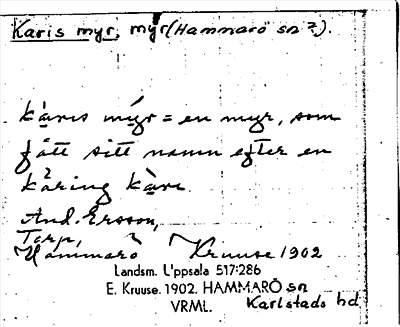 Karis myr, myr (Hammarö sn?).
karis myr = en myr, som
fått sitt namn efter en
kåring Kari.
And. Ersson,
Torp,
Hammarö Kruuse 1902
Landsm. Uppsala 517:286
E. Kruuse. 1902. HAMMARÖ sn
VRML. Karlstads hd